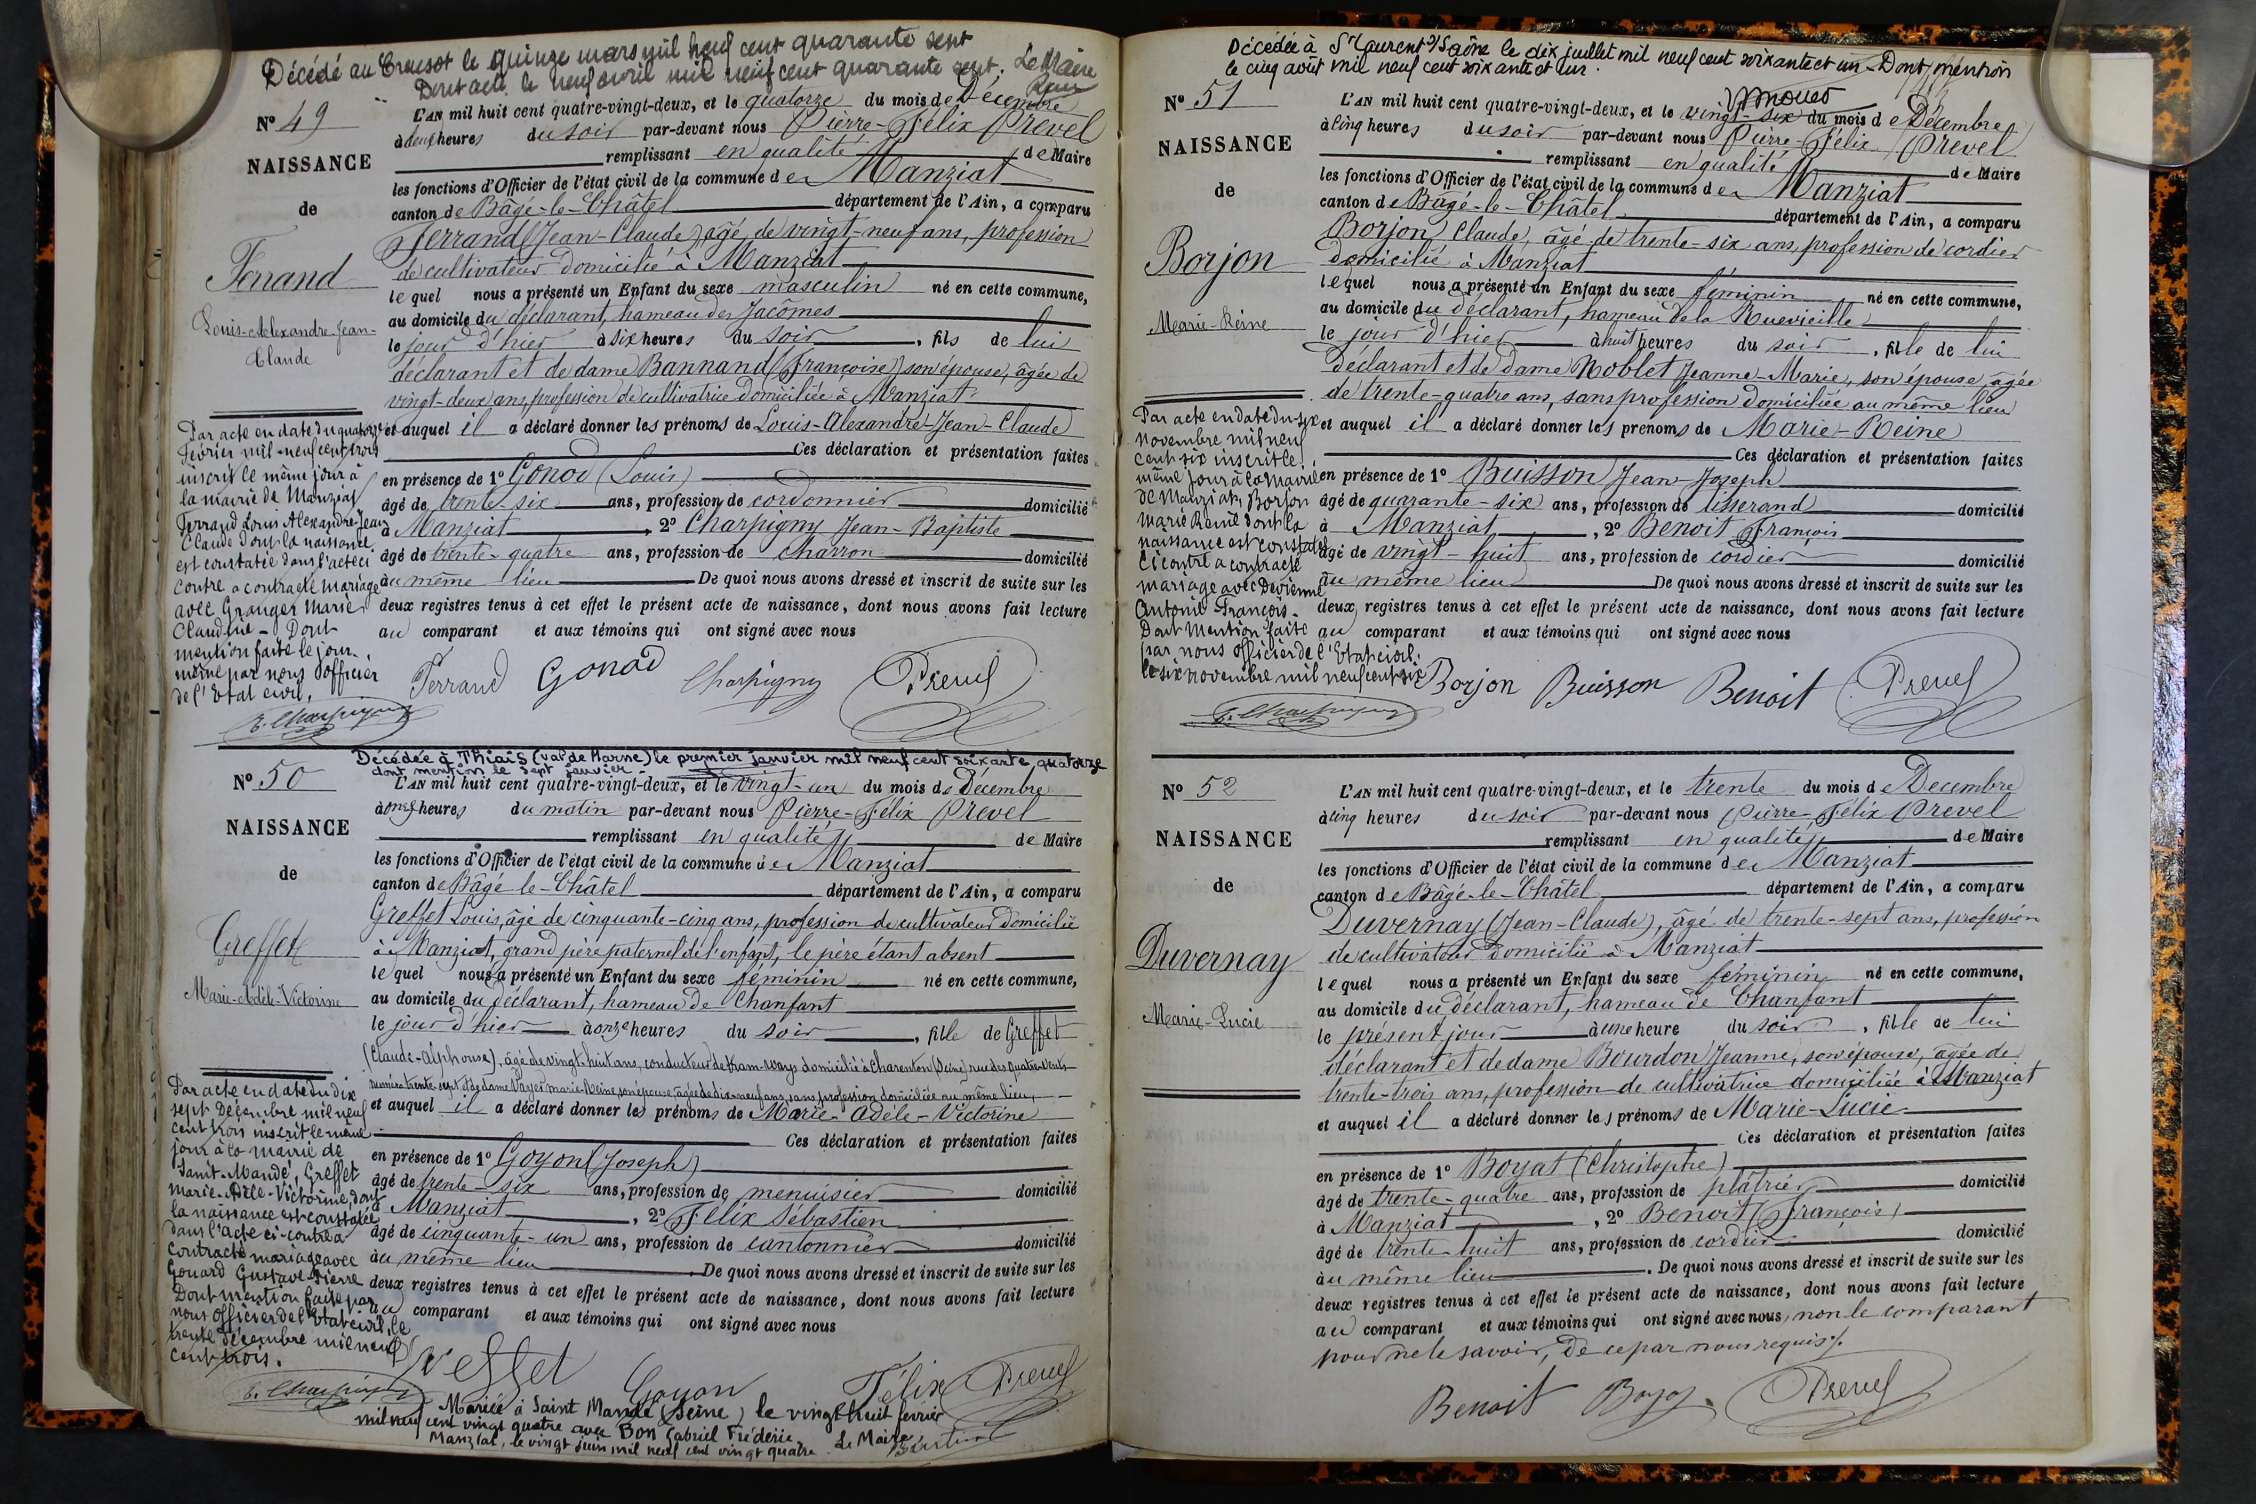 Décédé au Creusot le quinze mars mil neuf cent quarante sept
Dont acte le neuf avril mil neuf cent quarante sept. Le Maire
N° 49
NAISSANCE
de
Ferrand
Louis-Alexandre-Jean-
Claude
L'AN mil huit cent quatre-vingt-deux, et le quatorze du mois de Décembre
à deux heures du soir par-devant nous Pierre-Félix Prevel
remplissant en qualité de Maire
les fonctions d'Officier de l'état civil de la commune de Manziat
canton de Bâgé-le-Châtel département de l'Ain, a comparu
Ferrand (Jean-Claude) âgé de vingt-neuf ans, profession
de cultivateur domicilié à Manziat
lequel nous a présenté un Enfant du sexe masculin né en cette commune,
au domicile du déclarant, hameau des Jacômes
le jour d'hier à six heures du soir, fils de lui
déclarant et de dame Bannand (Françoise) son épouse, âgée de
vingt-deux ans, profession de cultivatrice domiciliée à Manziat
et auquel il a déclaré donner les prénoms de Louis-Alexandre-Jean-Claude
Ces déclaration et présentation faites
en présence de 1° Gonod (Louis)
âgé de trente-six ans, profession de cordonnier domicilié
à Manziat, 2° Charpigny Jean-Baptiste
âgé de trente-quatre ans, profession de charron domicilié
au même lieu De quoi nous avons dressé et inscrit de suite sur les
deux registres tenus à cet effet le présent acte de naissance, dont nous avons fait lecture
au comparant et aux témoins qui ont signé avec nous
Ferrand Gonod Charpigny Prevel
Par acte en date du quatorze
février mil neuf cent trois
inscrit le même jour à
la mairie de Manziat
Ferrand Louis Alexandre Jean
Claude dont la naissance
est constatée dans l'acte ci
contre a contracté mariage
avec Granger Marie
Claudine - Dont
mention faite le jour
même par nous officier
de l'Etat civil.
E. Charpigny
Décédée à Thiais (Val de Marne) le premier janvier mil neuf cent soixante quatorze
dont mention le sept janvier -
N° 50
NAISSANCE
de
Greffet
Marie-Adèle-Victorine
L'AN mil huit cent quatre-vingt-deux, et le vingt-un du mois de Décembre
à onze heures du matin par-devant nous Pierre-Félix Prevel
remplissant en qualité de Maire
les fonctions d'Officier de l'état civil de la commune de Manziat
canton de Bâgé-le-Châtel département de l'Ain, a comparu
Greffet Louis, âgé de cinquante-cinq ans, profession de cultivateur domicilié
à Manziat, grand père paternel de l'enfant, le père étant absent
lequel nous a présenté un Enfant du sexe féminin né en cette commune,
au domicile du déclarant, hameau de Chanfant
le jour d'hier à onze heures du soir, fille de Greffet
(Claude-Alphonse), âgé de vingt-huit ans, conducteur de tram-ways domicilié à Charenton (Seine) rue des Quatre-Vents
numéro trente-sept et de dame Voyer Marie-Reine, son épouse âgée de dix-neuf ans, sans profession domiciliée au même lieu,
et auquel il a déclaré donner les prénoms de Marie-Adèle-Victorine
Ces déclaration et présentation faites
en présence de 1° Goyon (Joseph)
âgé de trente-six ans, profession de menuisier domicilié
à Manziat, 2° Félix Sébastien
âgé de cinquante-un ans, profession de cantonnier domicilié
au même lieu De quoi nous avons dressé et inscrit de suite sur les
deux registres tenus à cet effet le présent acte de naissance, dont nous avons fait lecture
au comparant et aux témoins qui ont signé avec nous
Greffet Goyon Félix Prevel
Par acte en date du dix
sept Décembre mil neuf
cent trois inscrit le même
jour à la mairie de
Saint-Mandé, Greffet
Marie-Adèle-Victorine, dont
la naissance est constatée
dans l'acte ci-contre a
contracté mariage avec
Gouard Gustave-Pierre
Dont mention faite par
nous officier de l'Etat civil, le
trente décembre mil neuf
cent trois.
E. Charpigny
Mariée à Saint Mandé (Seine) le vingt huit février
mil neuf cent vingt quatre avec Bon Gabriel Frédéric
Manziat, le vingt juin mil neuf cent vingt quatre. Le Maire
Décédée à St Laurent s/ Saône le dix juillet mil neuf cent soixante et un - Dont mention
le cinq août mil neuf cent soixante et un.
N° 51
NAISSANCE
de
Borjon
Marie-Reine
L'AN mil huit cent quatre-vingt-deux, et le vingt-six du mois de Décembre
à cinq heures du soir par-devant nous Pierre-Félix Prevel
remplissant en qualité de Maire
les fonctions d'Officier de l'état civil de la commune de Manziat
canton de Bâgé-le-Châtel département de l'Ain, a comparu
Borjon Claude, âgé de trente-six ans, profession de cordier
domicilié à Manziat
lequel nous a présenté un Enfant du sexe féminin né en cette commune,
au domicile du déclarant, hameau de la Ruevieille
le jour d'hier à huit heures du soir, fille de lui
déclarant et de dame Noblet Jeanne-Marie, son épouse, âgée
de trente-quatre ans, sans profession domiciliée au même lieu
et auquel il a déclaré donner les prénoms de Marie-Reine
Ces déclaration et présentation faites
en présence de 1° Buisson Jean-Joseph
âgé de quarante-six ans, profession de tisserand domicilié
à Manziat, 2° Benoit François
âgé de vingt-huit ans, profession de cordier domicilié
au même lieu De quoi nous avons dressé et inscrit de suite sur les
deux registres tenus à cet effet le présent acte de naissance, dont nous avons fait lecture
au comparant et aux témoins qui ont signé avec nous
Borjon Buisson Benoit Prevel
Par acte en date du six
novembre mil neuf
cent six inscrit le
même jour à la Mairie
de Manziat, Borjon
Marie Reine dont la
naissance est constatée
ci contre a contracté
mariage avec Devienne
Antonie François.
Dont Mention faite
par nous officier de l'Etat civil.
le six novembre mil neuf cent six
E. Charpigny
N° 52
NAISSANCE
de
Duvernay
Marie-Lucie
L'AN mil huit cent quatre-vingt-deux, et le trente du mois de Décembre
à cinq heures du soir par-devant nous Pierre-Félix Prevel
remplissant en qualité de Maire
les fonctions d'Officier de l'état civil de la commune de Manziat
canton de Bâgé-le-Châtel département de l'Ain, a comparu
Duvernay (Jean-Claude), âgé de trente-sept ans, profession
de cultivateur domicilié à Manziat
lequel nous a présenté un Enfant du sexe féminin né en cette commune,
au domicile du déclarant, hameau de Chanfant
le présent jour à une heure du soir, fille de lui
déclarant et de dame Bourdon Jeanne, son épouse, âgée de
trente-trois ans, profession de cultivatrice domiciliée à Manziat
et auquel il a déclaré donner les prénoms de Marie-Lucie
Ces déclaration et présentation faites
en présence de 1° Boyat (Christophe)
âgé de trente-quatre ans, profession de plâtrier domicilié
à Manziat, 2° Benoit (François)
âgé de trente-huit ans, profession de cordier domicilié
au même lieu. De quoi nous avons dressé et inscrit de suite sur les
deux registres tenus à cet effet le présent acte de naissance, dont nous avons fait lecture
au comparant et aux témoins qui ont signé avec nous, non le comparant
pour ne le savoir, de ce par nous requis.
Benoit Boyat Prevel